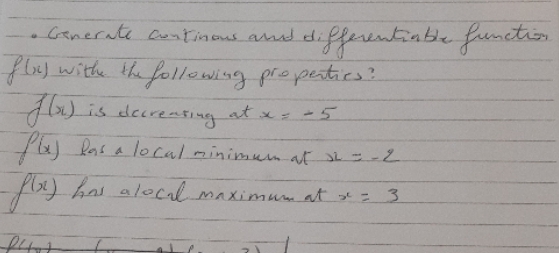 . Generate continous and differentiable function
f(x) withe the following properties?
f(x) is decreasing at x = -5
f(x) has a local minimum at x = -2
f(x) has a local maximum at x = 3